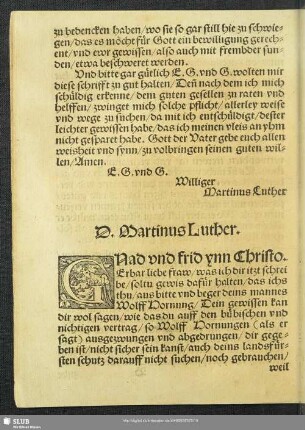 zu bedencken haben/wo sie so gar still hie zu schwie-
gen/das es möcht für Gott ein bewilligung gerech-
ent/vnd ewr gewissen/also auch mit frembder sun-
den/etwa beschweret werden.
Vnd bitte gar gütlich E.G.vnd G.wolten mir
diese schrifft zu gut halten/Deñ nach dem ich mich
schüldig erkenne/dem guten gesellen zu raten vnd
helffen/zwinget mich solche pflicht/allerley weise
vnd wege zu suchen/da mit ich entschüldigt/dester
leichter gewissen habe/das ich meinen vleis an yhm
nicht gesparet habe. Gott der Vater gebe euch allen
weisheit vnd synn/zu volbringen seinen guten wil-
len/Amen.
E.G.vnd G.
Williger
Martinus Luther
D. Martinus Luther.
GNad vnd frid ynn Christo.
Erbar liebe fraw/was ich dir itzt schrei
be/soltu gewis dafür halten/das ichs
thu/ans bitte vnd beger deins mannes
Wolff Hornung/Dein gewissen kan
dir wol sagen/wie das du auff den hübischen vnd
nichtigen vertrag/so Wolff Hornungen (als er
sagt) ausgezwungen vnd abgedrungen/dir gege-
ben ist/nicht sicher sein kanst/auch deins landsfür-
sten schutz darauff nicht suchen/noch gebrauchen/
weil
SLUB